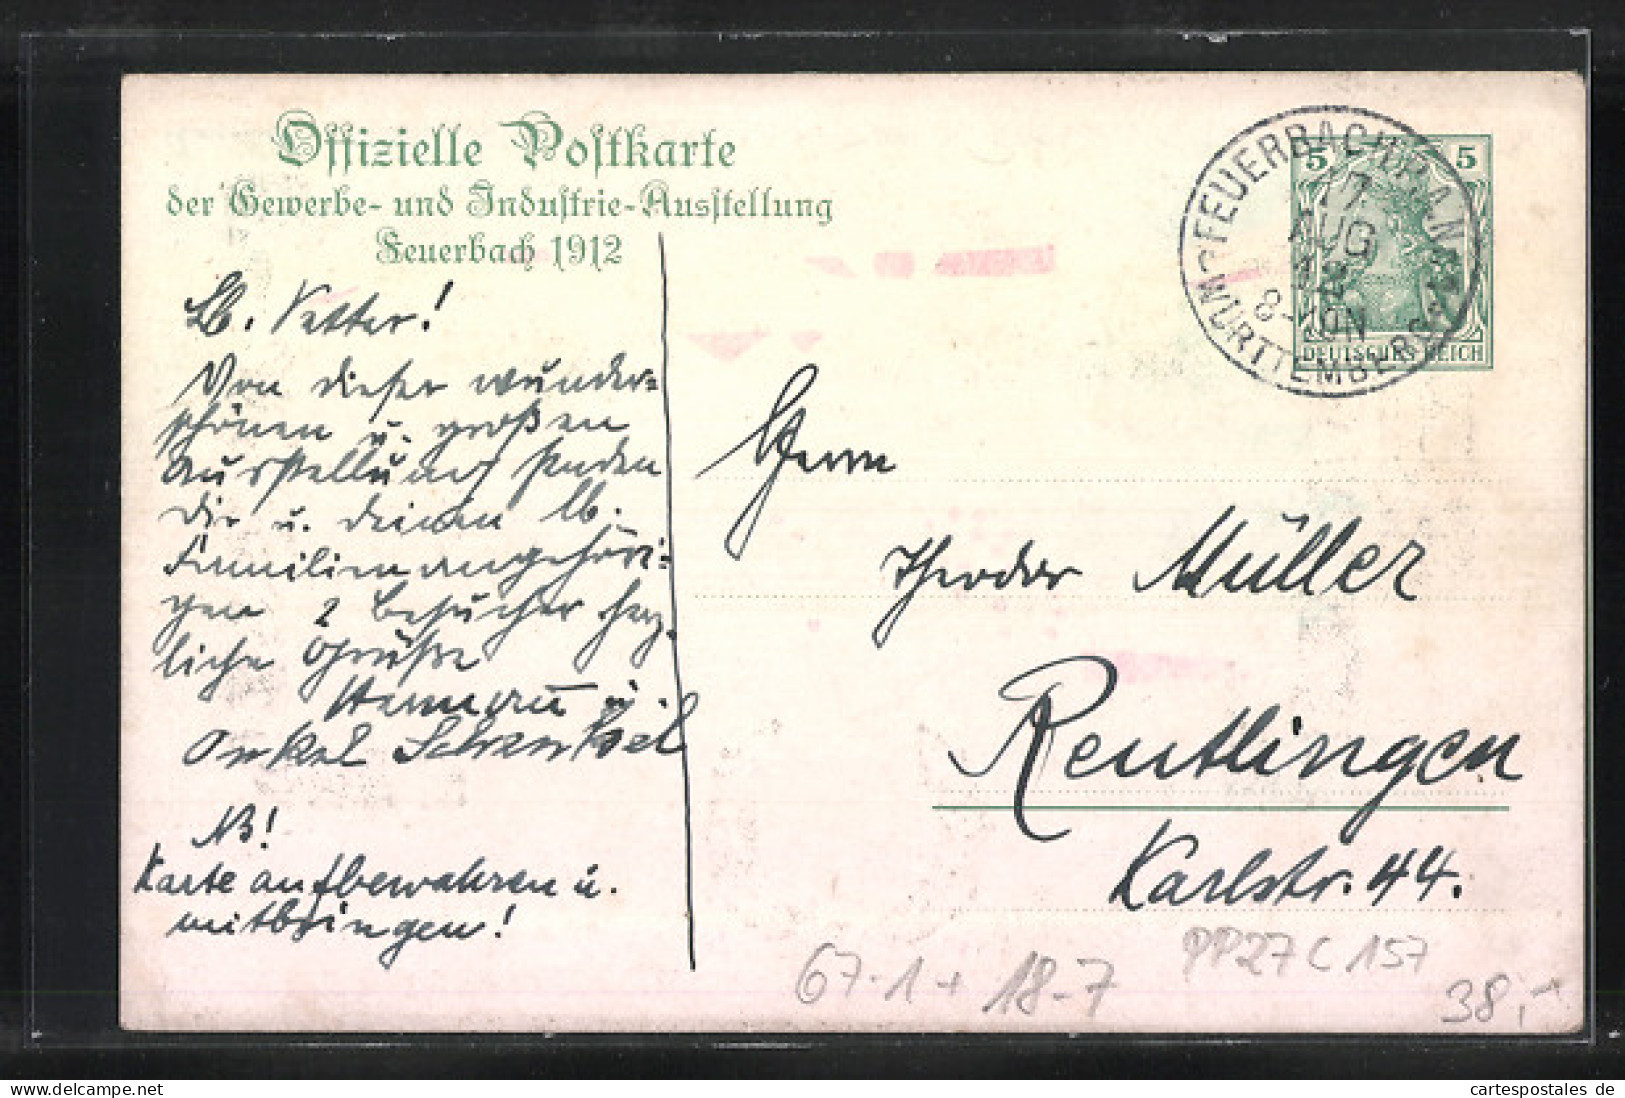 Offizielle Postkarte
der Gewerbe- und Industrie-Ausstellung
Feuerbach 1912
Lb. Vetter!
Von dieser wunder=
schönen u. großen
Ausstellung senden
Dir u. deinen lb.
Familienangehöri=
gen 2 Besucher herz-
liche Grüße
Hermann u.
Onkel Schenkel
NB!
Karte aufbewahren u.
mitbringen!
5 5
DEUTSCHES REICH
FEUERBACH
AUG
12
8-
WÜRTTEMBERG
Herrn
Theodor Müller
Reutlingen
Karlstr. 44.
67-1+ 18-7
PP27 C 157
38,-
www.cartespostales.de
cartespostales de